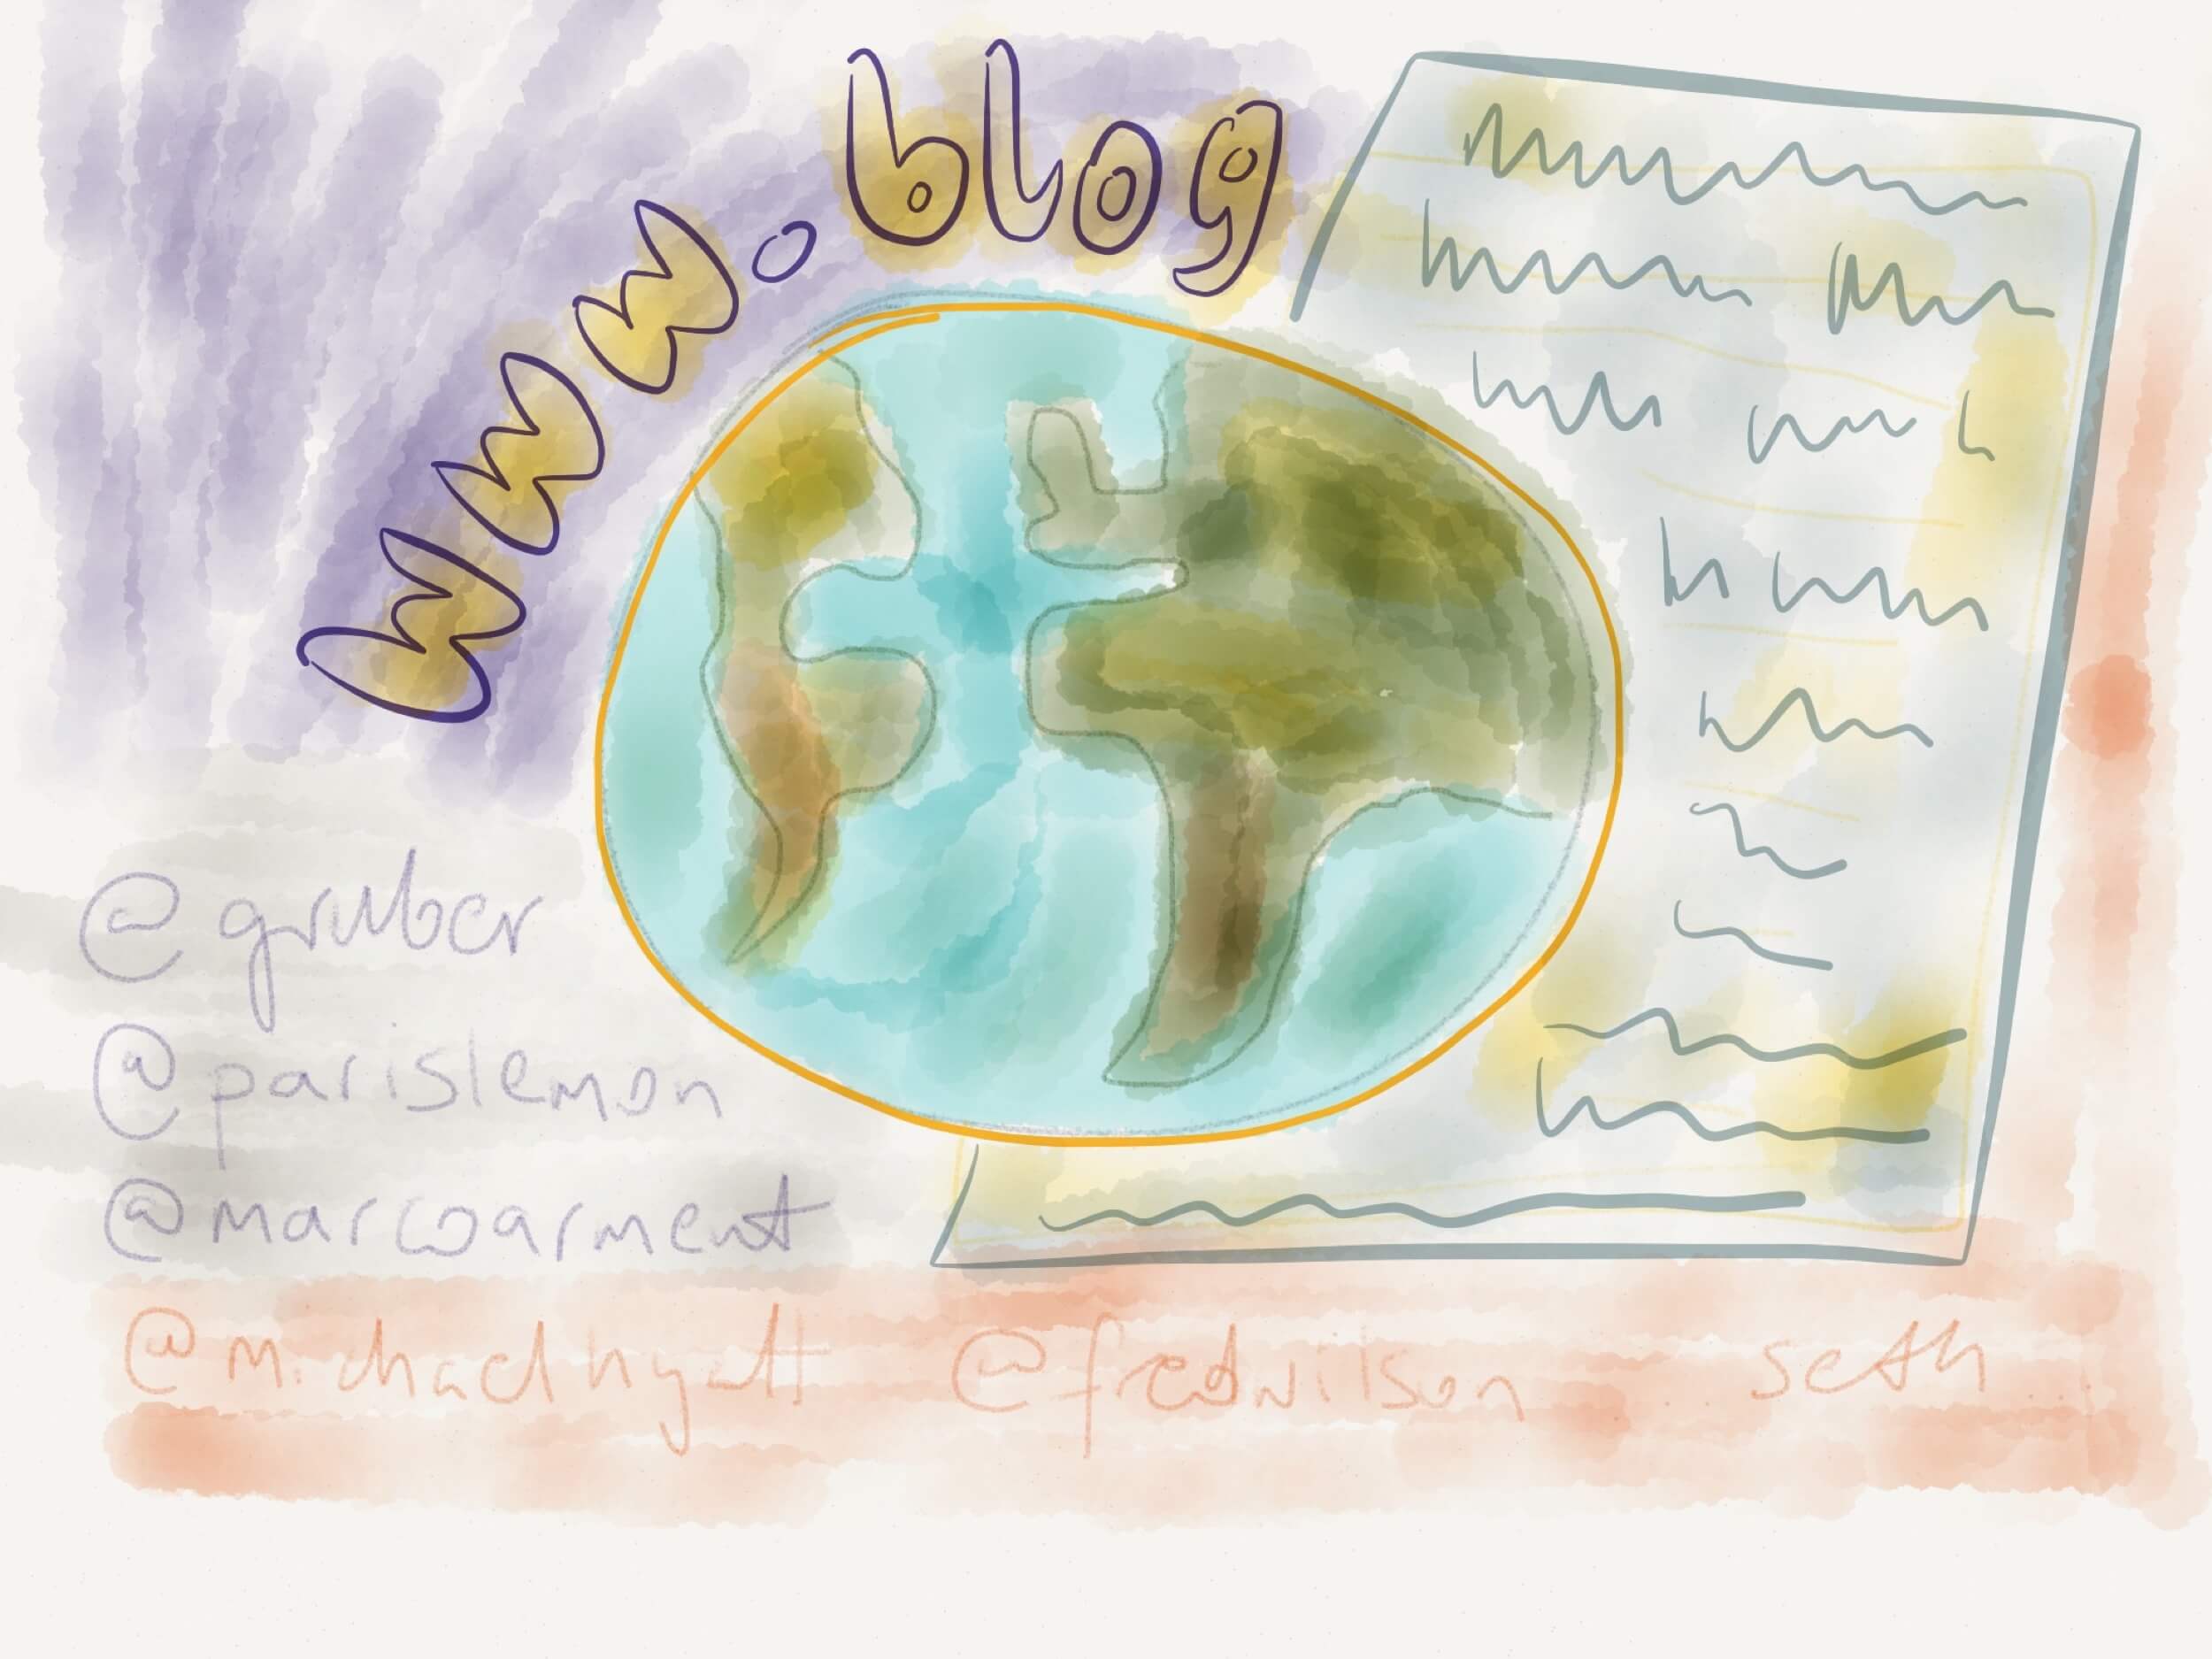 www.blog
@gruber
@parislemon
@marcoarment
@michaelhyatt @fredwilson ... seth...